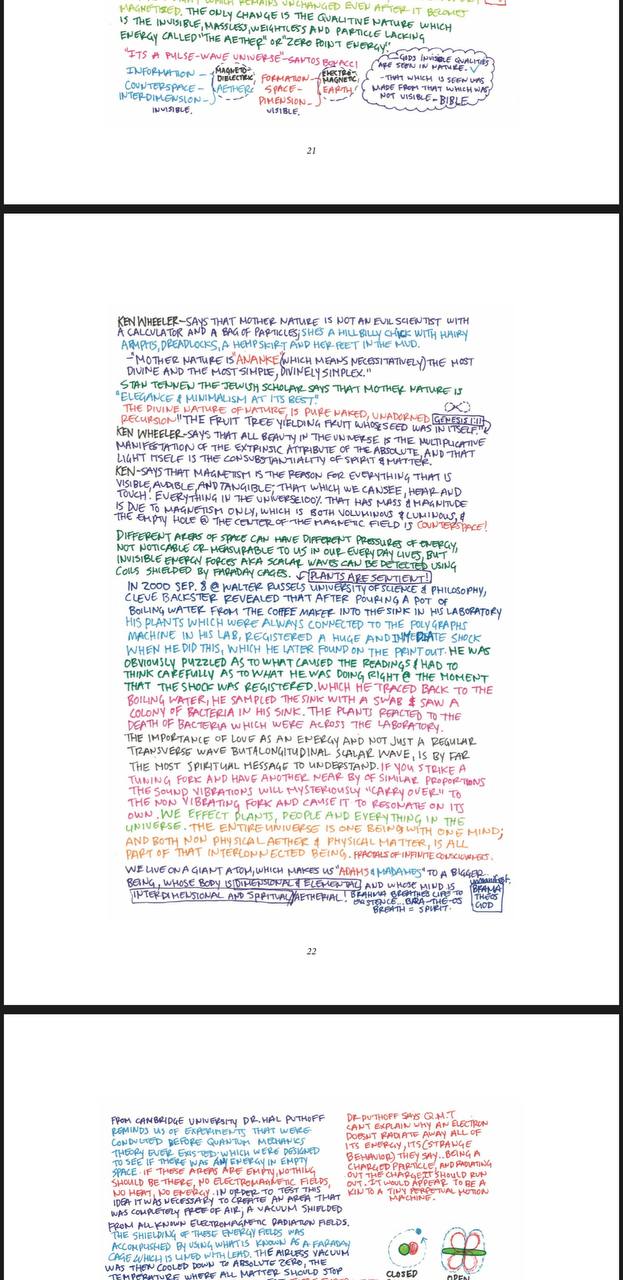 MAGNETISED. THE ONLY CHANGE IS THE QUALITIVE NATURE WHICH
IS THE INVISIBLE, MASSLESS, WEIGHTLESS AND PARTICLE LACKING
ENERGY CALLED "THE AETHER" OR "ZERO POINT ENERGY".
"ITS A PULSE-WAVE UNIVERSE" -SANTOS BONACCI
INFORMATION -
COUNTERSPACE -
INTERDIMENSION -
INVISIBLE.
MAGNETO-
DIELECTRIC
AETHER
FORMATION -
SPACE -
DIMENSION -
VISIBLE.
ELEKTRO-
MAGNETIC
EARTH
- GODS INVISIBLE QUALITIES
ARE SEEN IN NATURE. ✓
- THAT WHICH IS SEEN WAS
MADE FROM THAT WHICH WAS
NOT VISIBLE - BIBLE
21
KEN WHEELER - SAYS THAT MOTHER NATURE IS NOT AN EVIL SCIENTIST WITH
A CALCULATOR AND A BAG OF PARTICLES; SHES A HILLBILLY CHICK WITH HAIRY
ARMPITS, DREADLOCKS, A HEMP SKIRT AND HER FEET IN THE MUD.
- "MOTHER NATURE IS "ANANKE" (WHICH MEANS NECESSITATIVELY) THE MOST
DIVINE AND THE MOST SIMPLE, DIVINELY SIMPLEX."
STAN TENNEN THE JEWISH SCHOLAR SAYS THAT MOTHER NATURE IS
"ELEGANCE & MINIMALISM AT ITS BEST."
THE DIVINE NATURE OF NATURE, IS PURE NAKED, UNADORNED GENESIS 1:11
RECURSION "THE FRUIT TREE YIELDING FRUIT WHOSE SEED WAS IN ITSELF"
KEN WHEELER - SAYS THAT ALL BEAUTY IN THE UNIVERSE IS THE MULTIPLICATIVE
MANIFESTATION OF THE EXTRINSIC ATTRIBUTE OF THE ABSOLUTE, AND THAT
LIGHT ITSELF IS THE CONSUBSTANTIALITY OF SPIRIT & MATTER.
KEN - SAYS THAT MAGNETISM IS THE REASON FOR EVERYTHING THAT IS
VISIBLE, AUDIBLE, AND TANGIBLE; THAT WHICH WE CAN SEE, HEAR AND
TOUCH! EVERYTHING IN THE UNIVERSE 100% THAT HAS MASS & MAGNITUDE
IS DUE TO MAGNETISM ONLY, WHICH IS BOTH VOLUMINOUS & LUMINOUS, &
THE EMPTY HOLE @ THE CENTER OF THE MAGNETIC FIELD IS COUNTERSPACE!
DIFFERENT AREAS OF SPACE CAN HAVE DIFFERENT PRESSURES OF ENERGY,
NOT NOTICABLE OR MEASURABLE TO US IN OUR EVERYDAY LIVES, BUT
INVISIBLE ENERGY FORCES AKA SCALAR WAVES CAN BE DETECTED USING
COILS SHIELDED BY FARADAY CAGES. PLANTS ARE SENTIENT!
IN 2000 SEP. 8 @ WALTER RUSSELS UNIVERSITY OF SCIENCE & PHILOSOPHY,
CLEVE BACKSTER REVEALED THAT AFTER POURING A POT OF
BOILING WATER FROM THE COFFEE MAKER INTO THE SINK IN HIS LABORATORY
HIS PLANTS WHICH WERE ALWAYS CONNECTED TO THE POLYGRAPHS
MACHINE IN HIS LAB, REGISTERED A HUGE AND IMMEDIATE SHOCK
WHEN HE DID THIS, WHICH HE LATER FOUND ON THE PRINT OUT. HE WAS
OBVIOUSLY PUZZLED AS TO WHAT CAUSED THE READINGS & HAD TO
THINK CAREFULLY AS TO WHAT HE WAS DOING RIGHT @ THE MOMENT
THAT THE SHOCK WAS REGISTERED. WHICH HE TRACED BACK TO THE
BOILING WATER; HE SAMPLED THE SINK WITH A SWAB & SAW A
COLONY OF BACTERIA IN HIS SINK. THE PLANTS REACTED TO THE
DEATH OF BACTERIA WHICH WERE ACROSS THE LABORATORY.
THE IMPORTANCE OF LOVE AS AN ENERGY AND NOT JUST A REGULAR
TRANSVERSE WAVE BUT A LONGITUDINAL SCALAR WAVE, IS BY FAR
THE MOST SPIRITUAL MESSAGE TO UNDERSTAND. IF YOU STRIKE A
TUNING FORK AND HAVE ANOTHER NEAR BY OF SIMILAR PROPORTIONS
THE SOUND VIBRATIONS WILL MYSTERIOUSLY "CARRY OVER" TO
THE NON VIBRATING FORK AND CAUSE IT TO RESONATE ON ITS
OWN. WE EFFECT PLANTS, PEOPLE AND EVERYTHING IN THE
UNIVERSE. THE ENTIRE UNIVERSE IS ONE BEING WITH ONE MIND;
AND BOTH NON PHYSICAL AETHER & PHYSICAL MATTER, IS ALL
PART OF THAT INTERCONNECTED BEING. FRACTALS OF INFINITE CONSCIOUSNESS.
WE LIVE ON A GIANT ATOM, WHICH MAKES US "ADAMS & MADAMES" TO A BIGGER
BEING, WHOSE BODY IS DIMENSIONAL & ELEMENTAL AND WHOSE MIND IS
INTERDIMENSIONAL AND SPIRITUAL/AETHERIAL! BRAHMA BREATHES LIFE TO
EXISTENCE... BRA-THE-OS
BREATH = SPIRIT.
BRAMA
THEOS
GOD
22
FROM CAMBRIDGE UNIVERSITY DR. HAL PUTHOFF
REMINDS US OF EXPERIMENTS THAT WERE
CONDUCTED BEFORE QUANTUM MECHANIKS
THEORY EVER EXISTED WHICH WERE DESIGNED
TO SEE IF THERE WAS ANY ENERGY IN EMPTY
SPACE. IF THESE AREAS ARE EMPTY, NOTHING
SHOULD BE THERE, NO ELECTROMAGNETIC FIELDS,
NO HEAT, NO ENERGY. IN ORDER TO TEST THIS
IDEA IT WAS NECESSARY TO CREATE AN AREA THAT
WAS COMPLETELY FREE OF AIR, A VACUUM SHIELDED
FROM ALL KNOWN ELECTROMAGNETIC RADIATION FIELDS.
THE SHIELDING OF THESE ENERGY FIELDS WAS
ACCOMPLISHED BY USING WHAT IS KNOWN AS A FARADAY
CAGE WHICH IS LINED WITH LEAD. THE AIRLESS VACUUM
WAS THEN COOLED DOWN TO ABSOLUTE ZERO, THE
TEMPERATURE WHERE ALL MATTER SHOULD STOP
DR PUTHOFF SAYS Q.M.T
CANT EXPLAIN WHY AN ELECTRON
DOESN'T RADIATE AWAY ALL OF
ITS ENERGY, ITS (STRANGE
BEHAVIOR) THEY SAY.. BEING A
CHARGED PARTICLE, AND RADIATING
OUT THE CHARGE IT SHOULD RUN
OUT. IT WOULD APPEAR TO BE A
KIN TO A TINY PERPETUAL MOTION
MACHINE.
CLOSED
OPEN